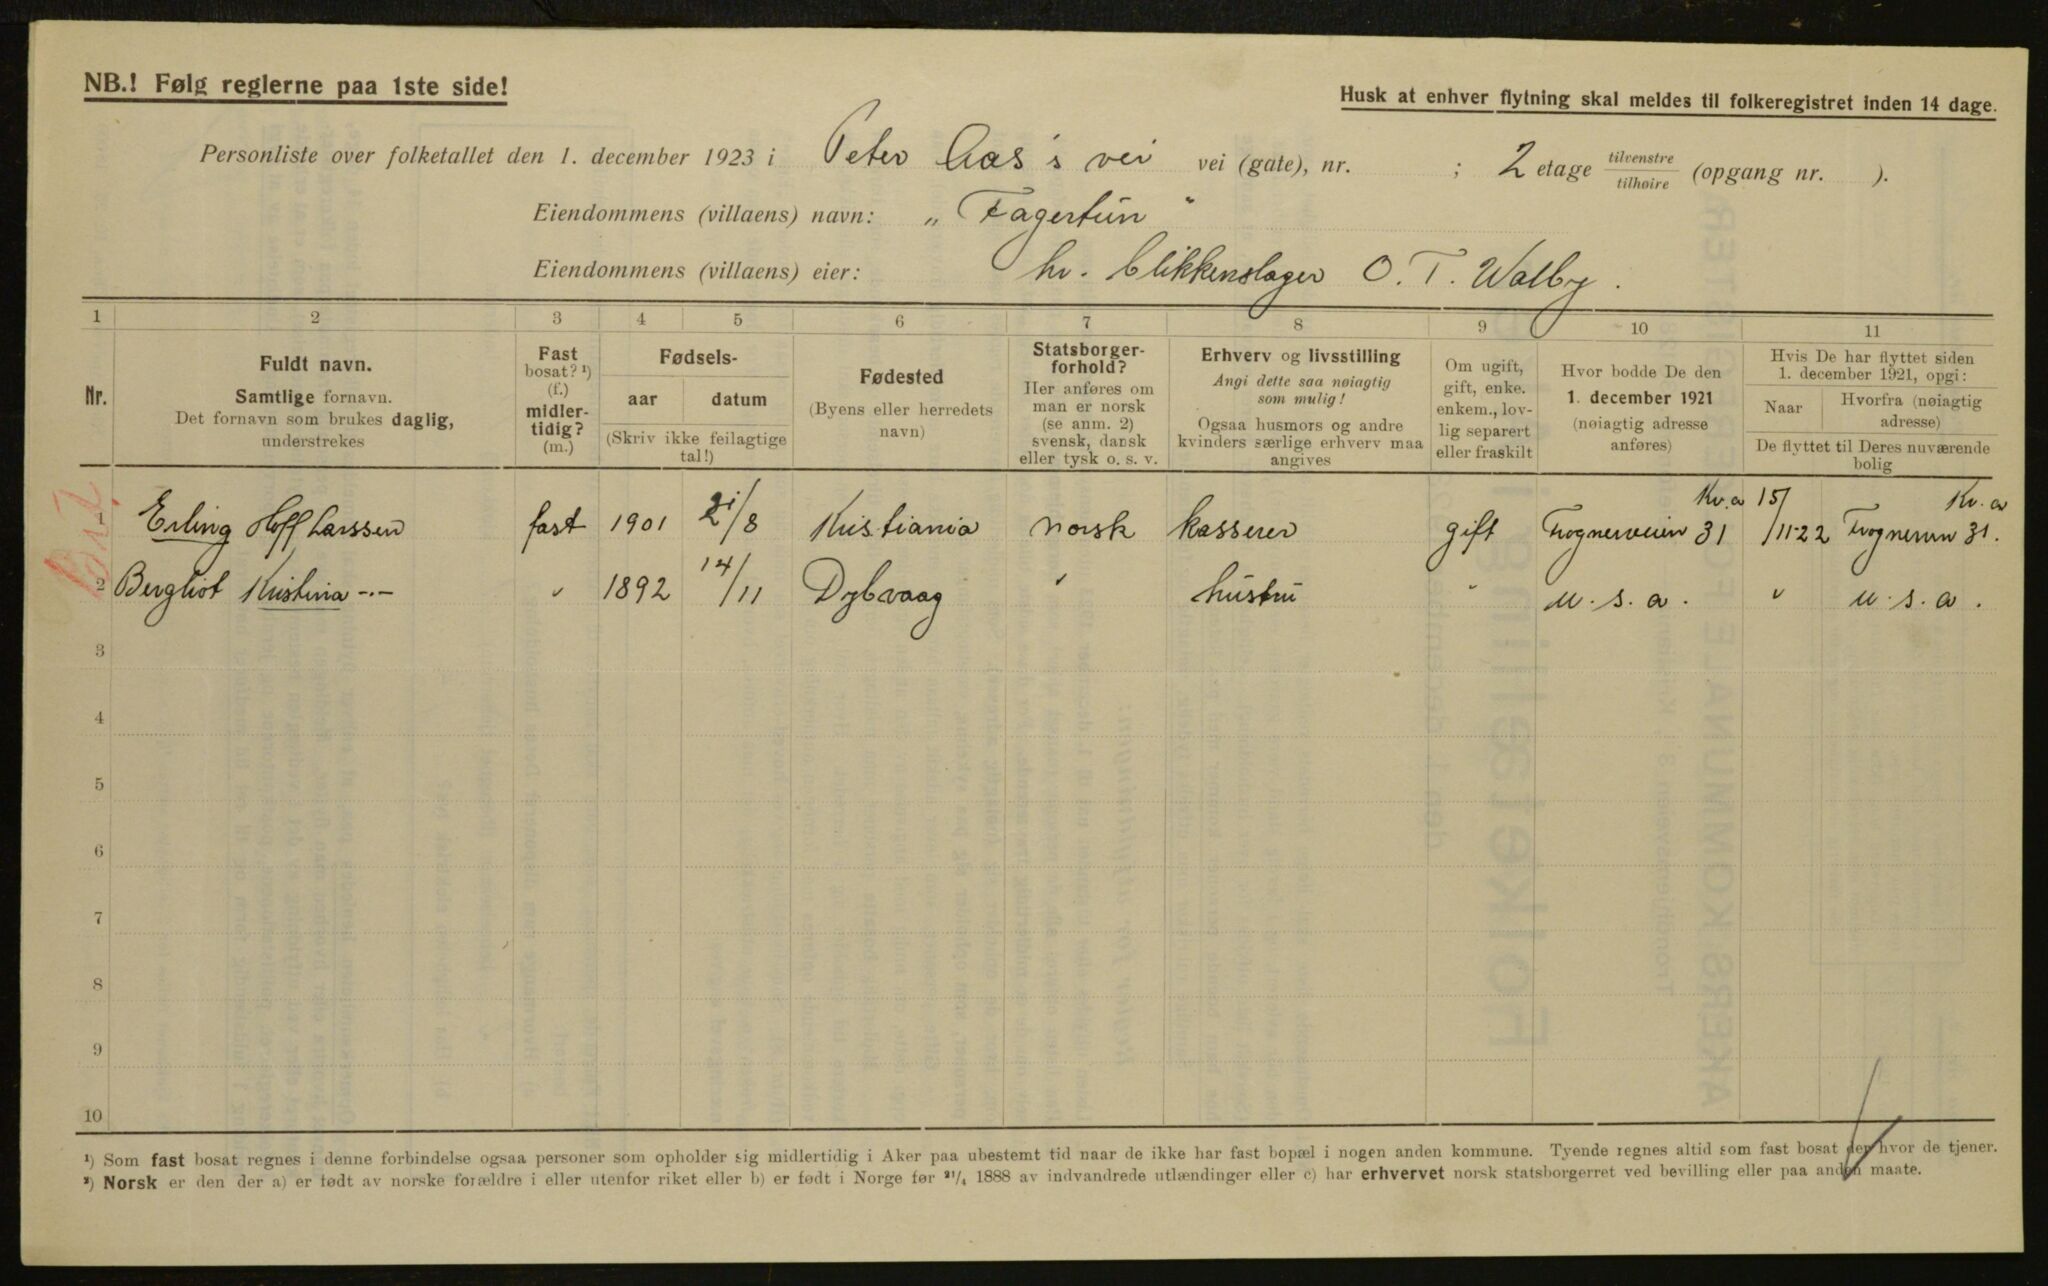 NB.! Følg reglerne paa 1ste side!
Husk at enhver flytning skal meldes til folkeregistret inden 14 dage.
Personliste over folketallet den 1. december 1923 i Peter Aas's vei vei (gate), nr. ; 2 etage tilvenstre/tilhøire (opgang nr. ).
Eiendommens (villaens) navn: „Fagertun"
Eiendommens (villaens) eier: hr. blikkenslager O. T. Walby.
1 2 3 4 5 6 7 8 9 10 11
Nr.
Fuldt navn.
Samtlige fornavn.
Det fornavn som brukes daglig,
understrekes
Fast
bosat? ¹)
(f.)
midler-
tidig?
(m.)
Fødsels-
aar datum
(Skriv ikke feilagtige
tal!)
Fødested
(Byens eller herredets
navn)
Statsborger-
forhold?
Her anføres om
man er norsk
(se anm. 2)
svensk, dansk
eller tysk o. s. v.
Erhverv og livsstilling
Angi dette saa nøiagtig
som mulig!
Ogsaa husmors og andre
kvinders særlige erhverv maa
angives
Om ugift,
gift, enke.
enkem., lov-
lig separert
eller fraskilt
Hvor bodde De den
1. december 1921
(nøiagtig adresse
anføres)
Hvis De har flyttet siden
1. december 1921, opgi:
Naar
Hvorfra (nøiagtig
adresse)
De flyttet til Deres nuværende
bolig
1 Erling Hoff Larssen fast 1901 21/8 Kristiania norsk kasserer gift Frognerveien 31 Kr.a 15/11-22 Frognervn 31. Kr. a
2 Bergliot Kristina -"- " 1892 14/11 Dybvaag " hustru " u. s. a. " u. s. a.
3
4
5
6
7
8
9
10
¹) Som fast bosat regnes i denne forbindelse ogsaa personer som opholder sig midlertidig i Aker paa ubestemt tid naar de ikke har fast bopæl i nogen anden kommune. Tyende regnes altid som fast bosat der hvor de tjener.
²) Norsk er den der a) er født av norske forældre i eller utenfor riket eller b) er født i Norge før ²¹/₄ 1888 av indvandrede utlændinger eller c) har erhvervet norsk statsborgerret ved bevilling eller paa anden maate.